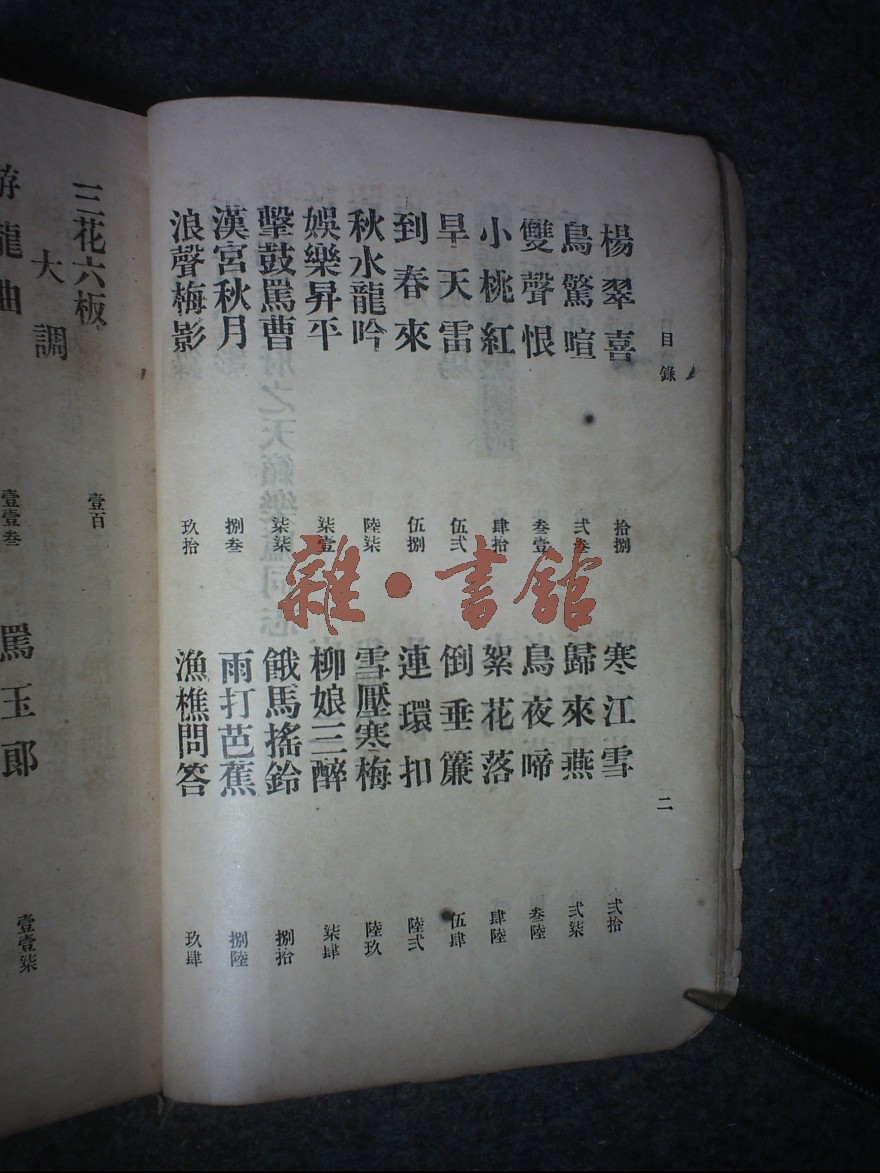 目錄 二
楊翠喜 拾捌 寒江雪 弍拾
鳥驚喧 弍叁 歸來燕 弍柒
雙聲恨 叁壹 鳥夜啼 叁陸
小桃紅 肆拾 絮花落 肆陸
旱天雷 伍弍 倒垂簾 伍肆
到春來 伍捌 連環扣 陸弍
秋水龍吟 陸柒 雪壓寒梅 陸玖
娛樂昇平 柒壹 柳娘三醉 柒肆
擊鼓罵曹 柒柒 餓馬搖鈴 捌拾
漢宮秋月 捌叁 雨打芭蕉 捌陸
浪聲梅影 玖拾 漁樵問答 玖肆
三花六板 壹百
大調
游龍曲 壹壹叁 罵玉郎 壹壹柒
雜·書館